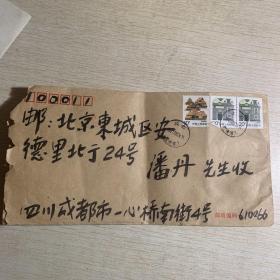 100011
邮：北京東城区安
德里北亍24号
潘丹 先生收
四川成都市一心桥南街4号
邮政编码 610066